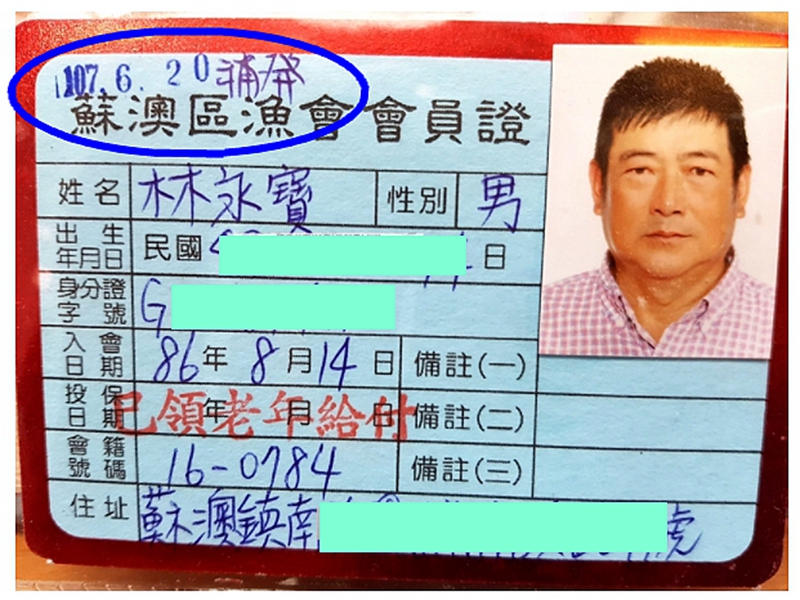 107.6.20補發
蘇澳區漁會會員證
姓名 林永寶 性別 男
出生年月日 民國 日
身分證字號 G
入會日期 86年8月14日 備註(一)
投保日期 年 月 日 備註(二)
已領老年給付
會籍號碼 16-0784 備註(三)
住址 蘇澳鎮南 號